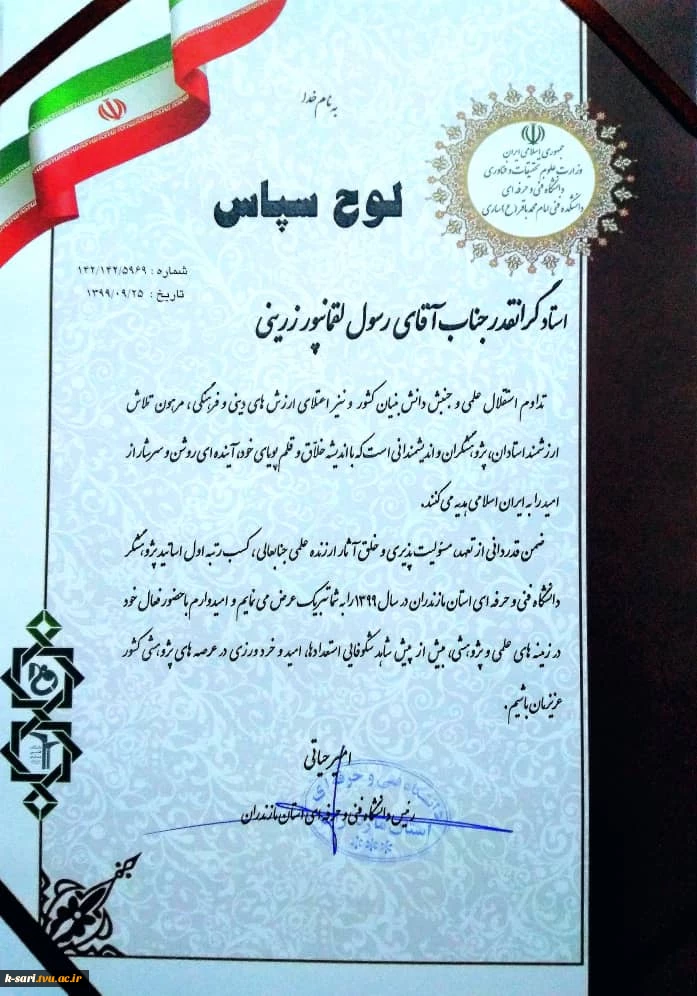 به نام خدا
جمهوری اسلامی ایران
وزارت علوم تحقیقات و فناوری
دانشگاه فنی و حرفه ای
دانشکده فنی امام محمد باقر (ع) ساری
لوح سپاس
شماره : ۱۴۲/۱۴۲/۵۹۶۹
تاریخ : ۱۳۹۹/۰۹/۲۵
استاد گرانقدر جناب آقای رسول لقمانپور زرینی
تداوم استقلال علمی و جنبش دانش بنیان کشور و نیز اعتلای ارزش های دینی و فرهنگی ، مرهون تلاش
ارزشمند استادان، پژوهشگران و اندیشمندانی است که با اندیشه خلاق و قلم پویای خود، آینده ای روشن و سرشار از
امید را به ایران اسلامی هدیه می کنند.
ضمن قدردانی از تعهد، مسئولیت پذیری و خلق آثار ارزنده علمی جنابعالی ، کسب رتبه اول اساتید پژوهشگر
دانشگاه فنی و حرفه ای استان مازندران در سال ۱۳۹۹ را به شما تبریک عرض می نمایم و امیدوارم با حضور فعال خود
در زمینه های علمی و پژوهشی، بیش از پیش شاهد شکوفایی استعدادها، امید و خرد ورزی در عرصه های پژوهشی کشور
عزیزمان باشیم .
امیر حیاتی
رئیس دانشگاه فنی و حرفه ای استان مازندران
دانشگاه فنی و حرفه ای
استان مازندران
k-sari.tvu.ac.ir